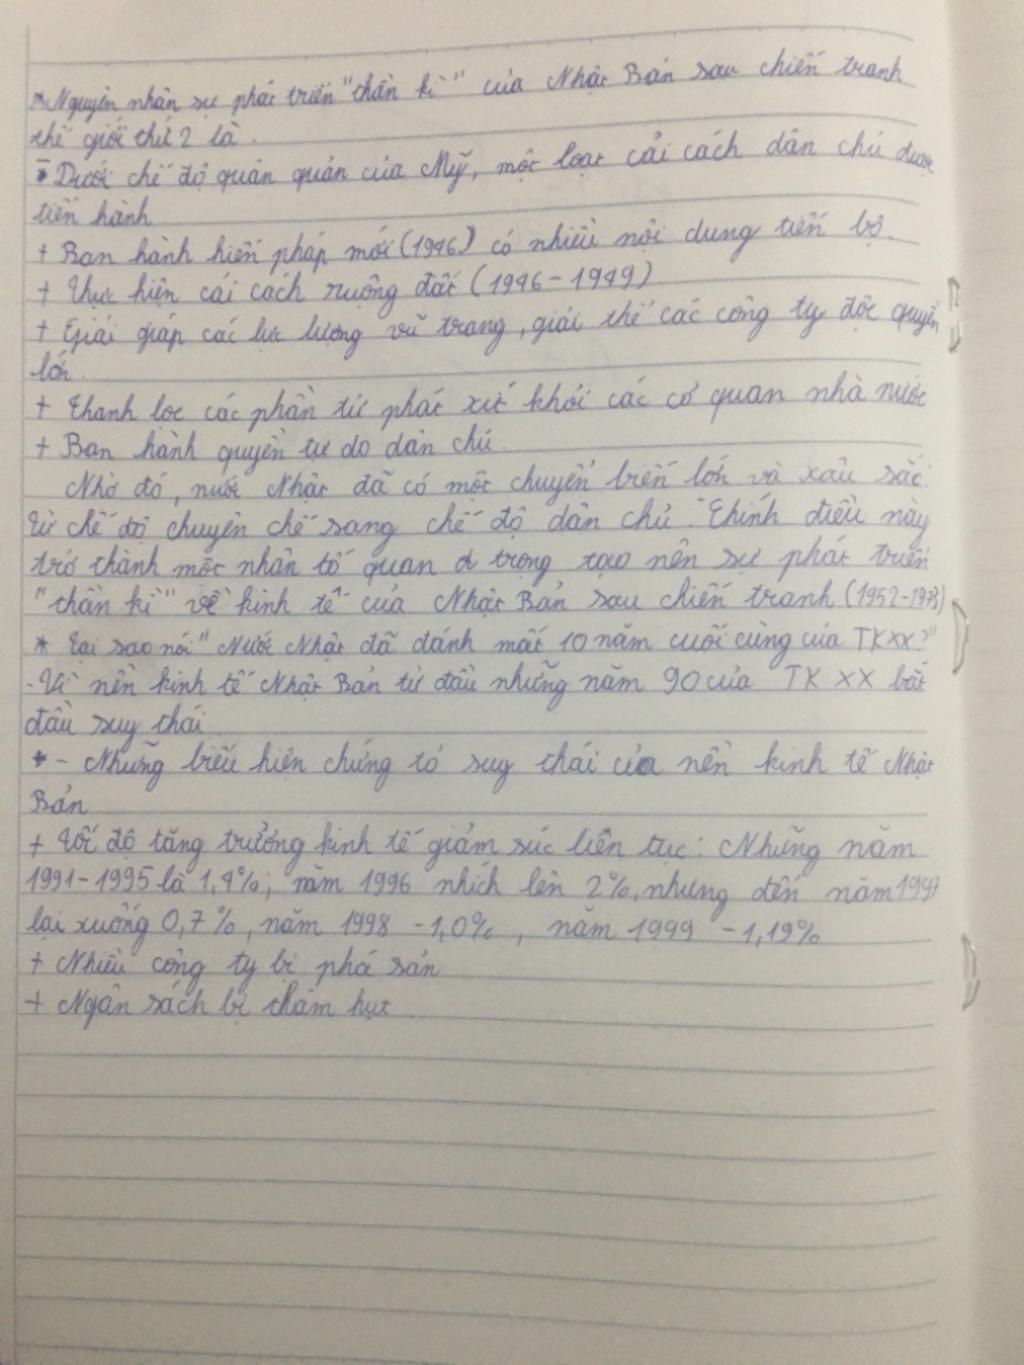 * Nguyên nhân sự phát triển "thần kì" của Nhật Bản sau chiến tranh
thế giới thứ 2 là.
- Dưới chế độ quân quản của Mỹ, một loạt cải cách dân chủ được
tiến hành
+ Ban hành hiến pháp mới (1946) có nhiều nội dung tiến bộ.
+ Thực hiện cải cách ruộng đất (1946-1949)
+ Giải giáp các lực lượng vũ trang, giải thể các công ty độc quyền
lớn.
+ Thanh lọc các phần tử phát xít khỏi các cơ quan nhà nước
+ Ban hành quyền tự do dân chủ.
Nhờ đó, nước Nhật đã có một chuyển biến lớn và xâu sắc.
Từ chế độ chuyên chế sang chế độ dân chủ. Chính điều này
trở thành một nhân tố quan trọng tạo nên sự phát triển
"thần kì" về kinh tế của Nhật Bản sau chiến tranh (1952-1973)
* Tại sao nói "Nước Nhật đã đánh mất 10 năm cuối cùng của TKXX?"
- Vì nền kinh tế Nhật Bản từ đầu những năm 90 của TK XX bắt
đầu suy thái
- Những biểu hiện chứng tỏ suy thái của nền kinh tế Nhật
Bản
+ Tốc độ tăng trưởng kinh tế giảm súc liên tục: Những năm
1991-1995 là 1,4%; năm 1996 nhích lên 2%, nhưng đến năm 1997
lại xuống 0,7%, năm 1998 -1,0%, năm 1999 -1,19%
+ Nhiều công ty bị phá sản
+ Ngân sách bị thâm hụt